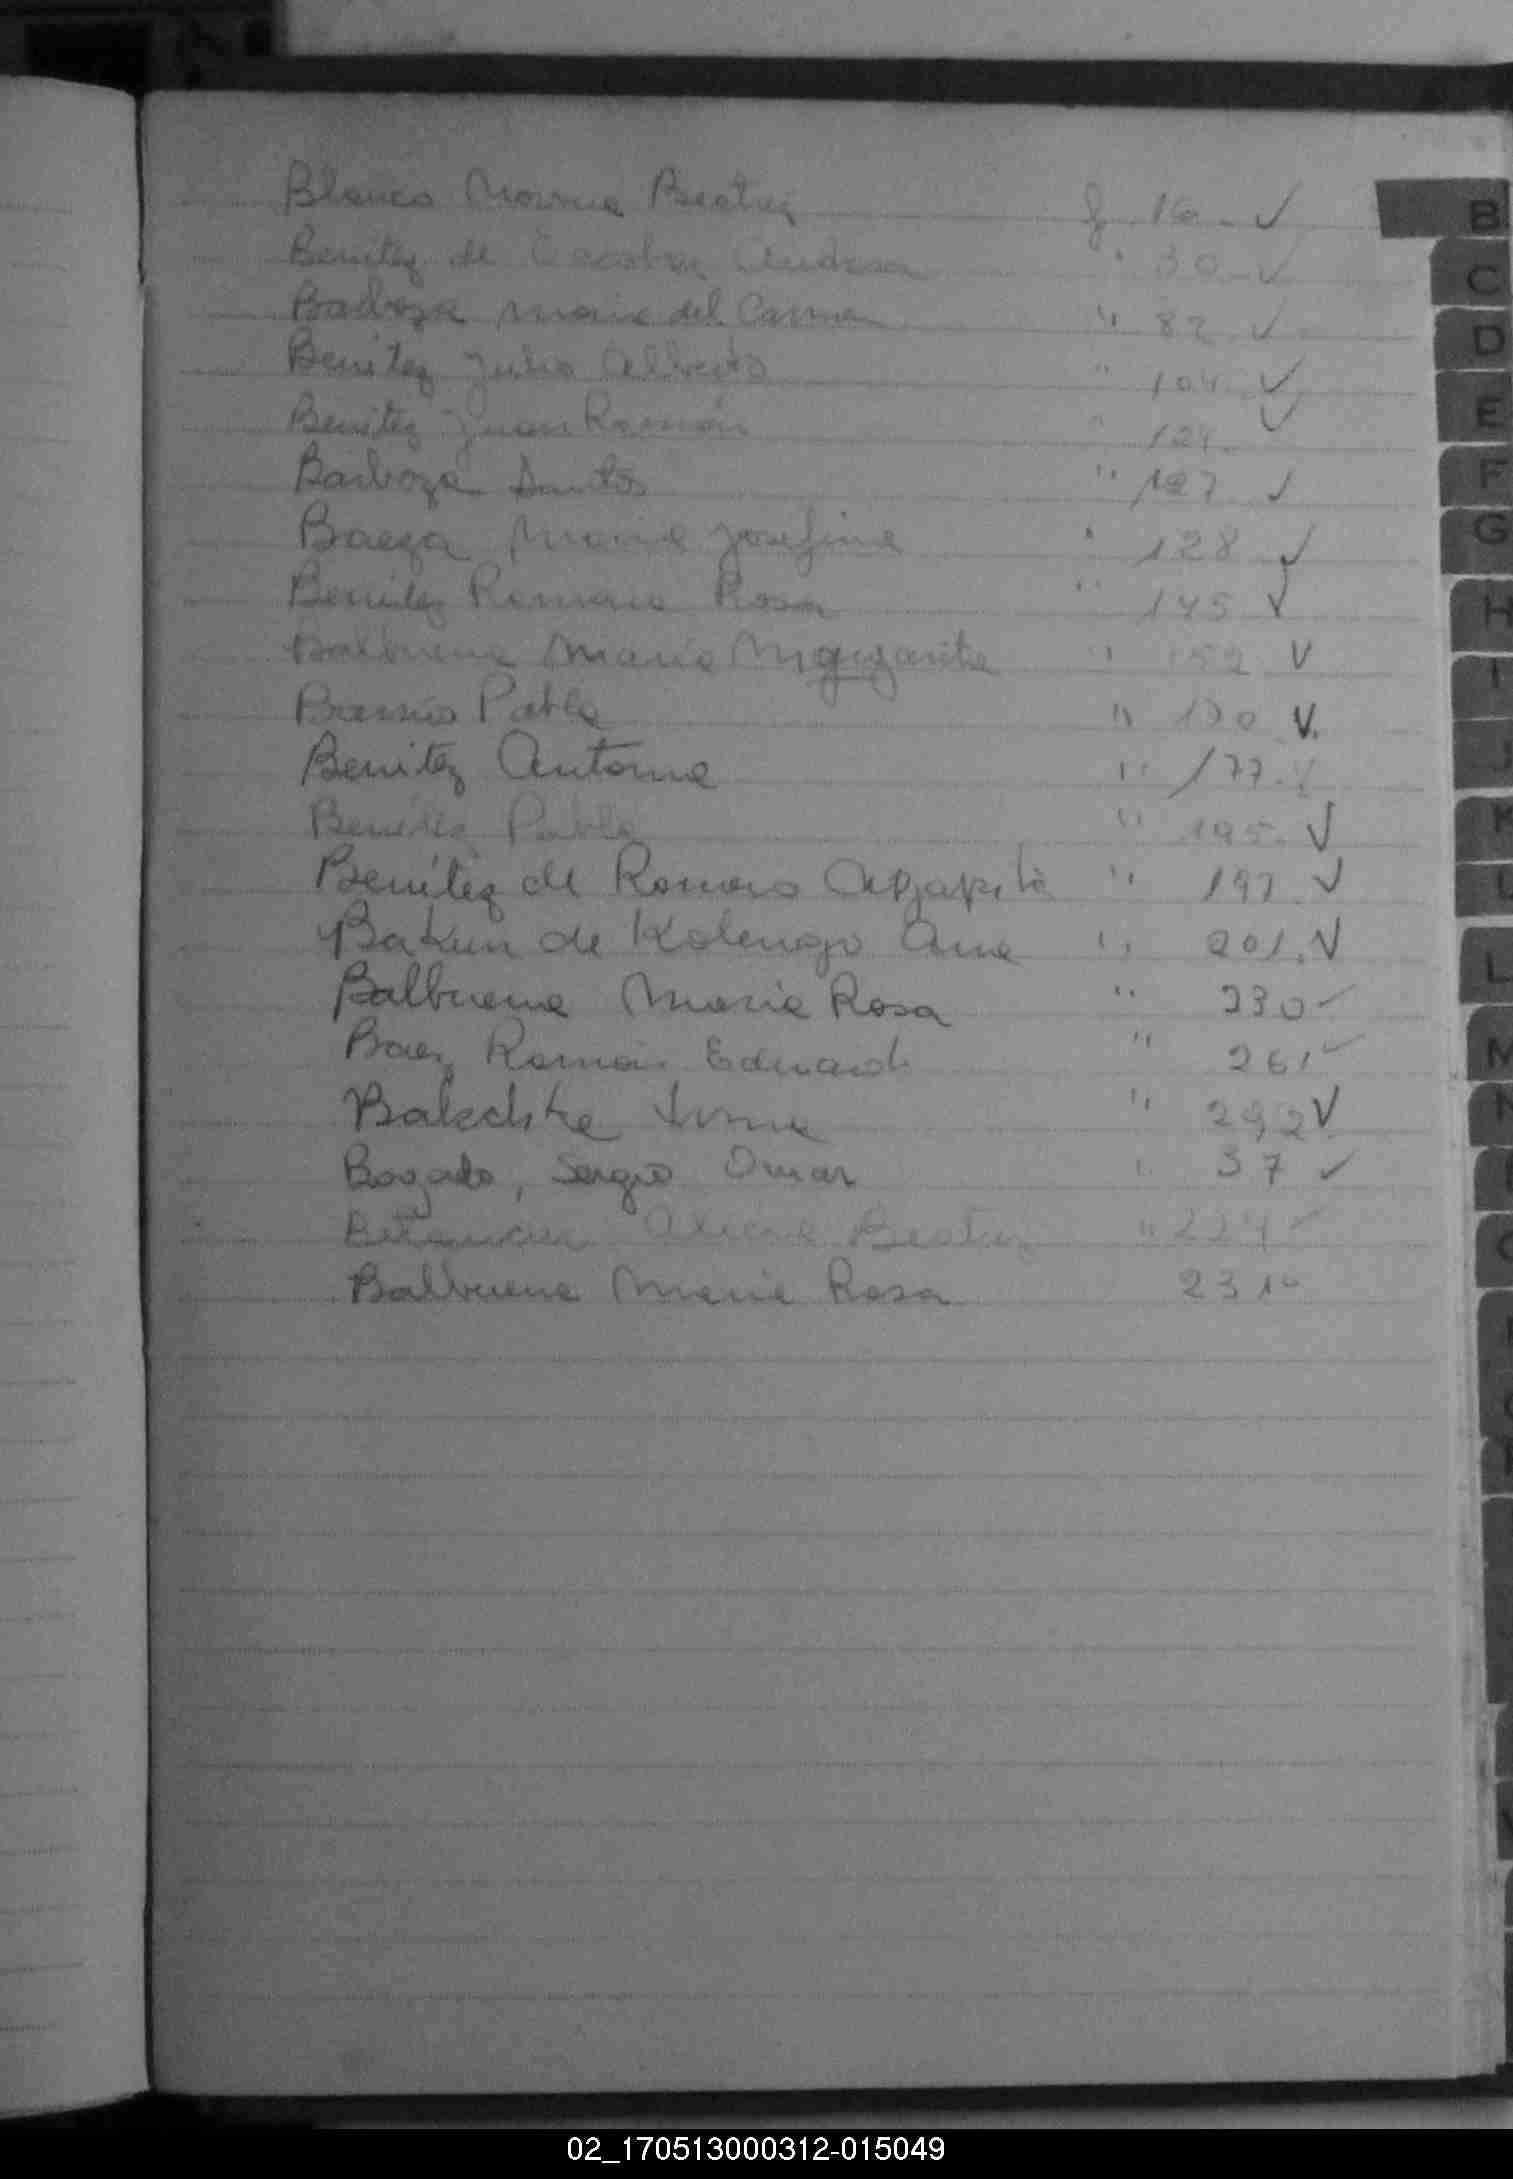 Blanco Norma Beatriz f 16 ✓
Benitez de Escobar Andresa " 30 ✓
Barboza Maria del Carmen " 82 ✓
Benitez Julio Alberto " 104 ✓
Benitez Juan Ramón " 124 ✓
Barboza Santos " 127 ✓
Baeza Maria Josefina " 128 ✓
Benitez Romero Rosa " 145 ✓
Balbuena Maria Margarita " 152 ✓
Barrios Pablo " 170 ✓
Benitez Antonia " 177 ✓
Benitez Pablo " 195 ✓
Benítez de Romero Agapita " 197 ✓
Bakun de Kolenogo Ana " 201 ✓
Balbuena Maria Rosa " 230 ✓
Baez Ramón Eduardo " 261 ✓
Irma " 292 ✓
Bogado, Sergio Omar " 37 ✓
Betancur Alicia Beatriz " 224 ✓
Balbuena Maria Rosa 231
B
C
D
E
F
G
H
I
J
K
L
L
M
N
02_170513000312-015049